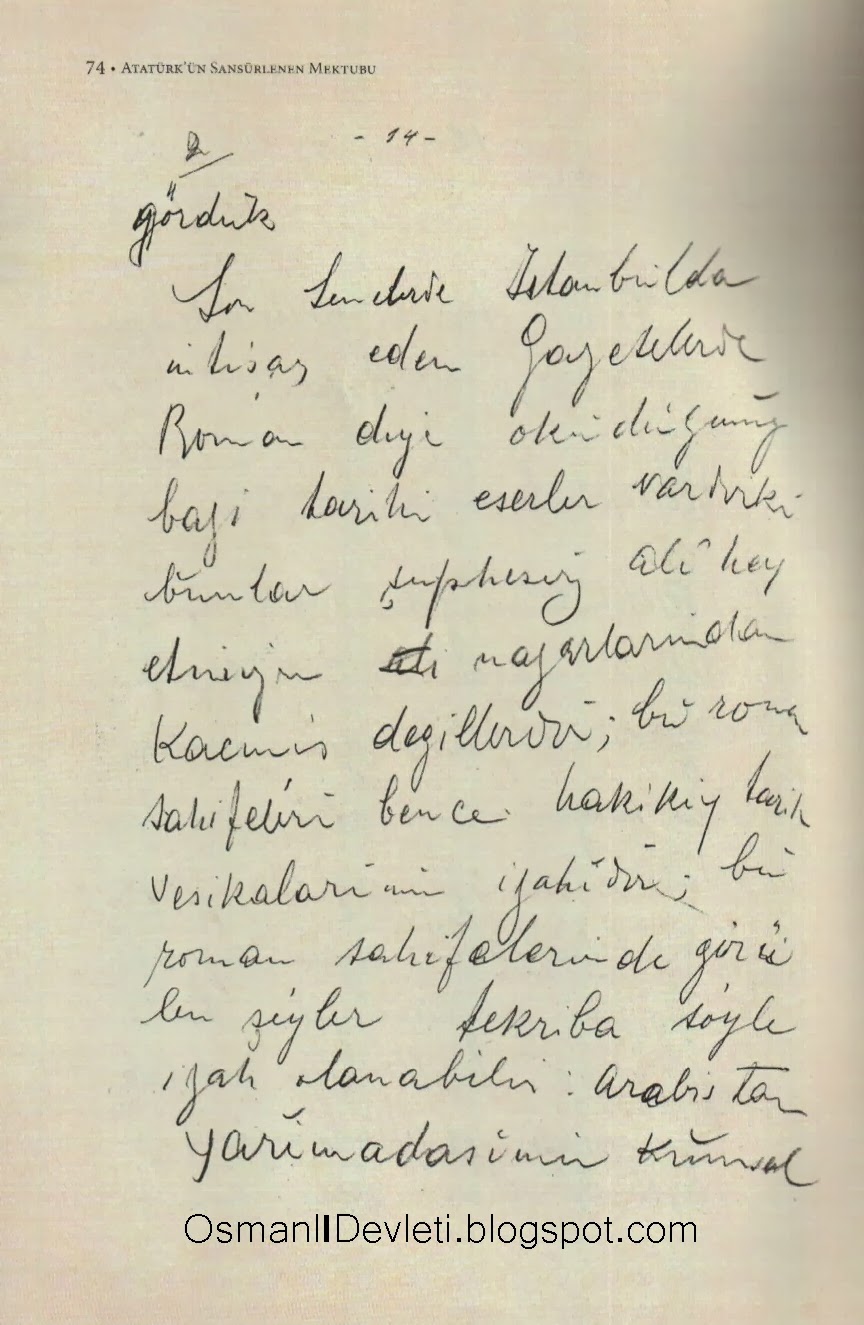 74 • ATATÜRK'ÜN SANSÜRLENEN MEKTUBU
- 14 -
gördük
Son senelerde Istanbulda
intişar eden Gazetelerde
Roman diye okuduğumuz
bazi tarihi eserler vardırki
bunlar şuphesiz ali hey
etinizin nazarlarından
Kacmıs degillerdir; bu roman
sahifeleri bence hakikiy tarih
Vesikalarinin izahidir; bu
roman sahifelerinde görü
len şeyler tekriba söyle
izah olunabilir: Arabistan
Yarimadasinin kumsal
OsmanlIDevleti.blogspot.com